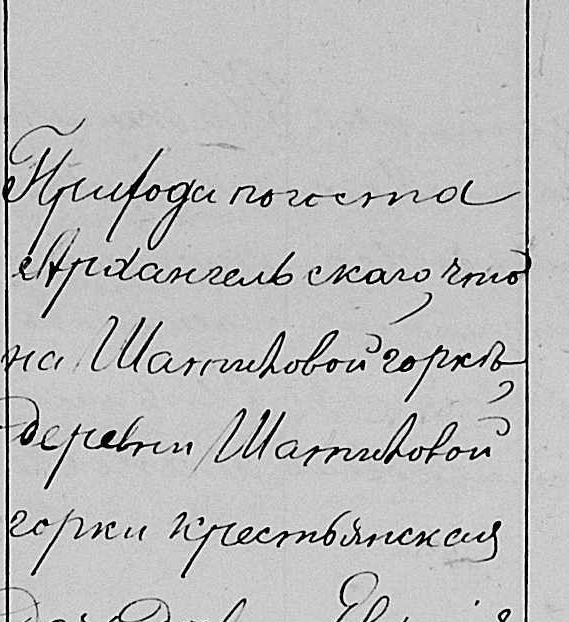 Прихода погоста
Архангельскаго, что
на Шатиловой горкѣ,
деревни Шатиловой
горки крестьянская